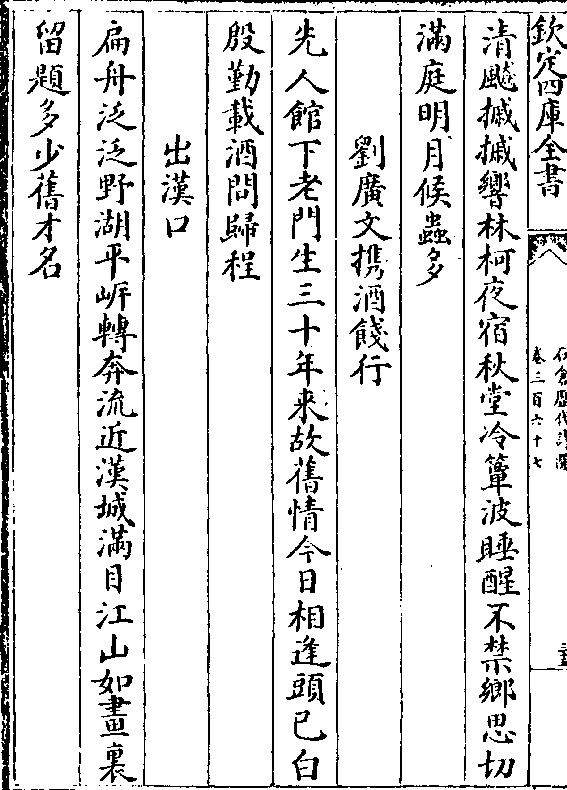 欽定四庫全書
卷三百六十七
清飈摵摵響林柯夜宿秋堂冷簟波睡醒不禁鄉思切
滿庭明月候蟲多
劉廣文携酒餞行
先人館下老門生三十年来故舊情今日相逢頭已白
殷勤載酒問歸程
出漢口
扁舟泛泛野湖平㟁轉奔流近漢城滿目江山如畫裏
留題多少舊才名